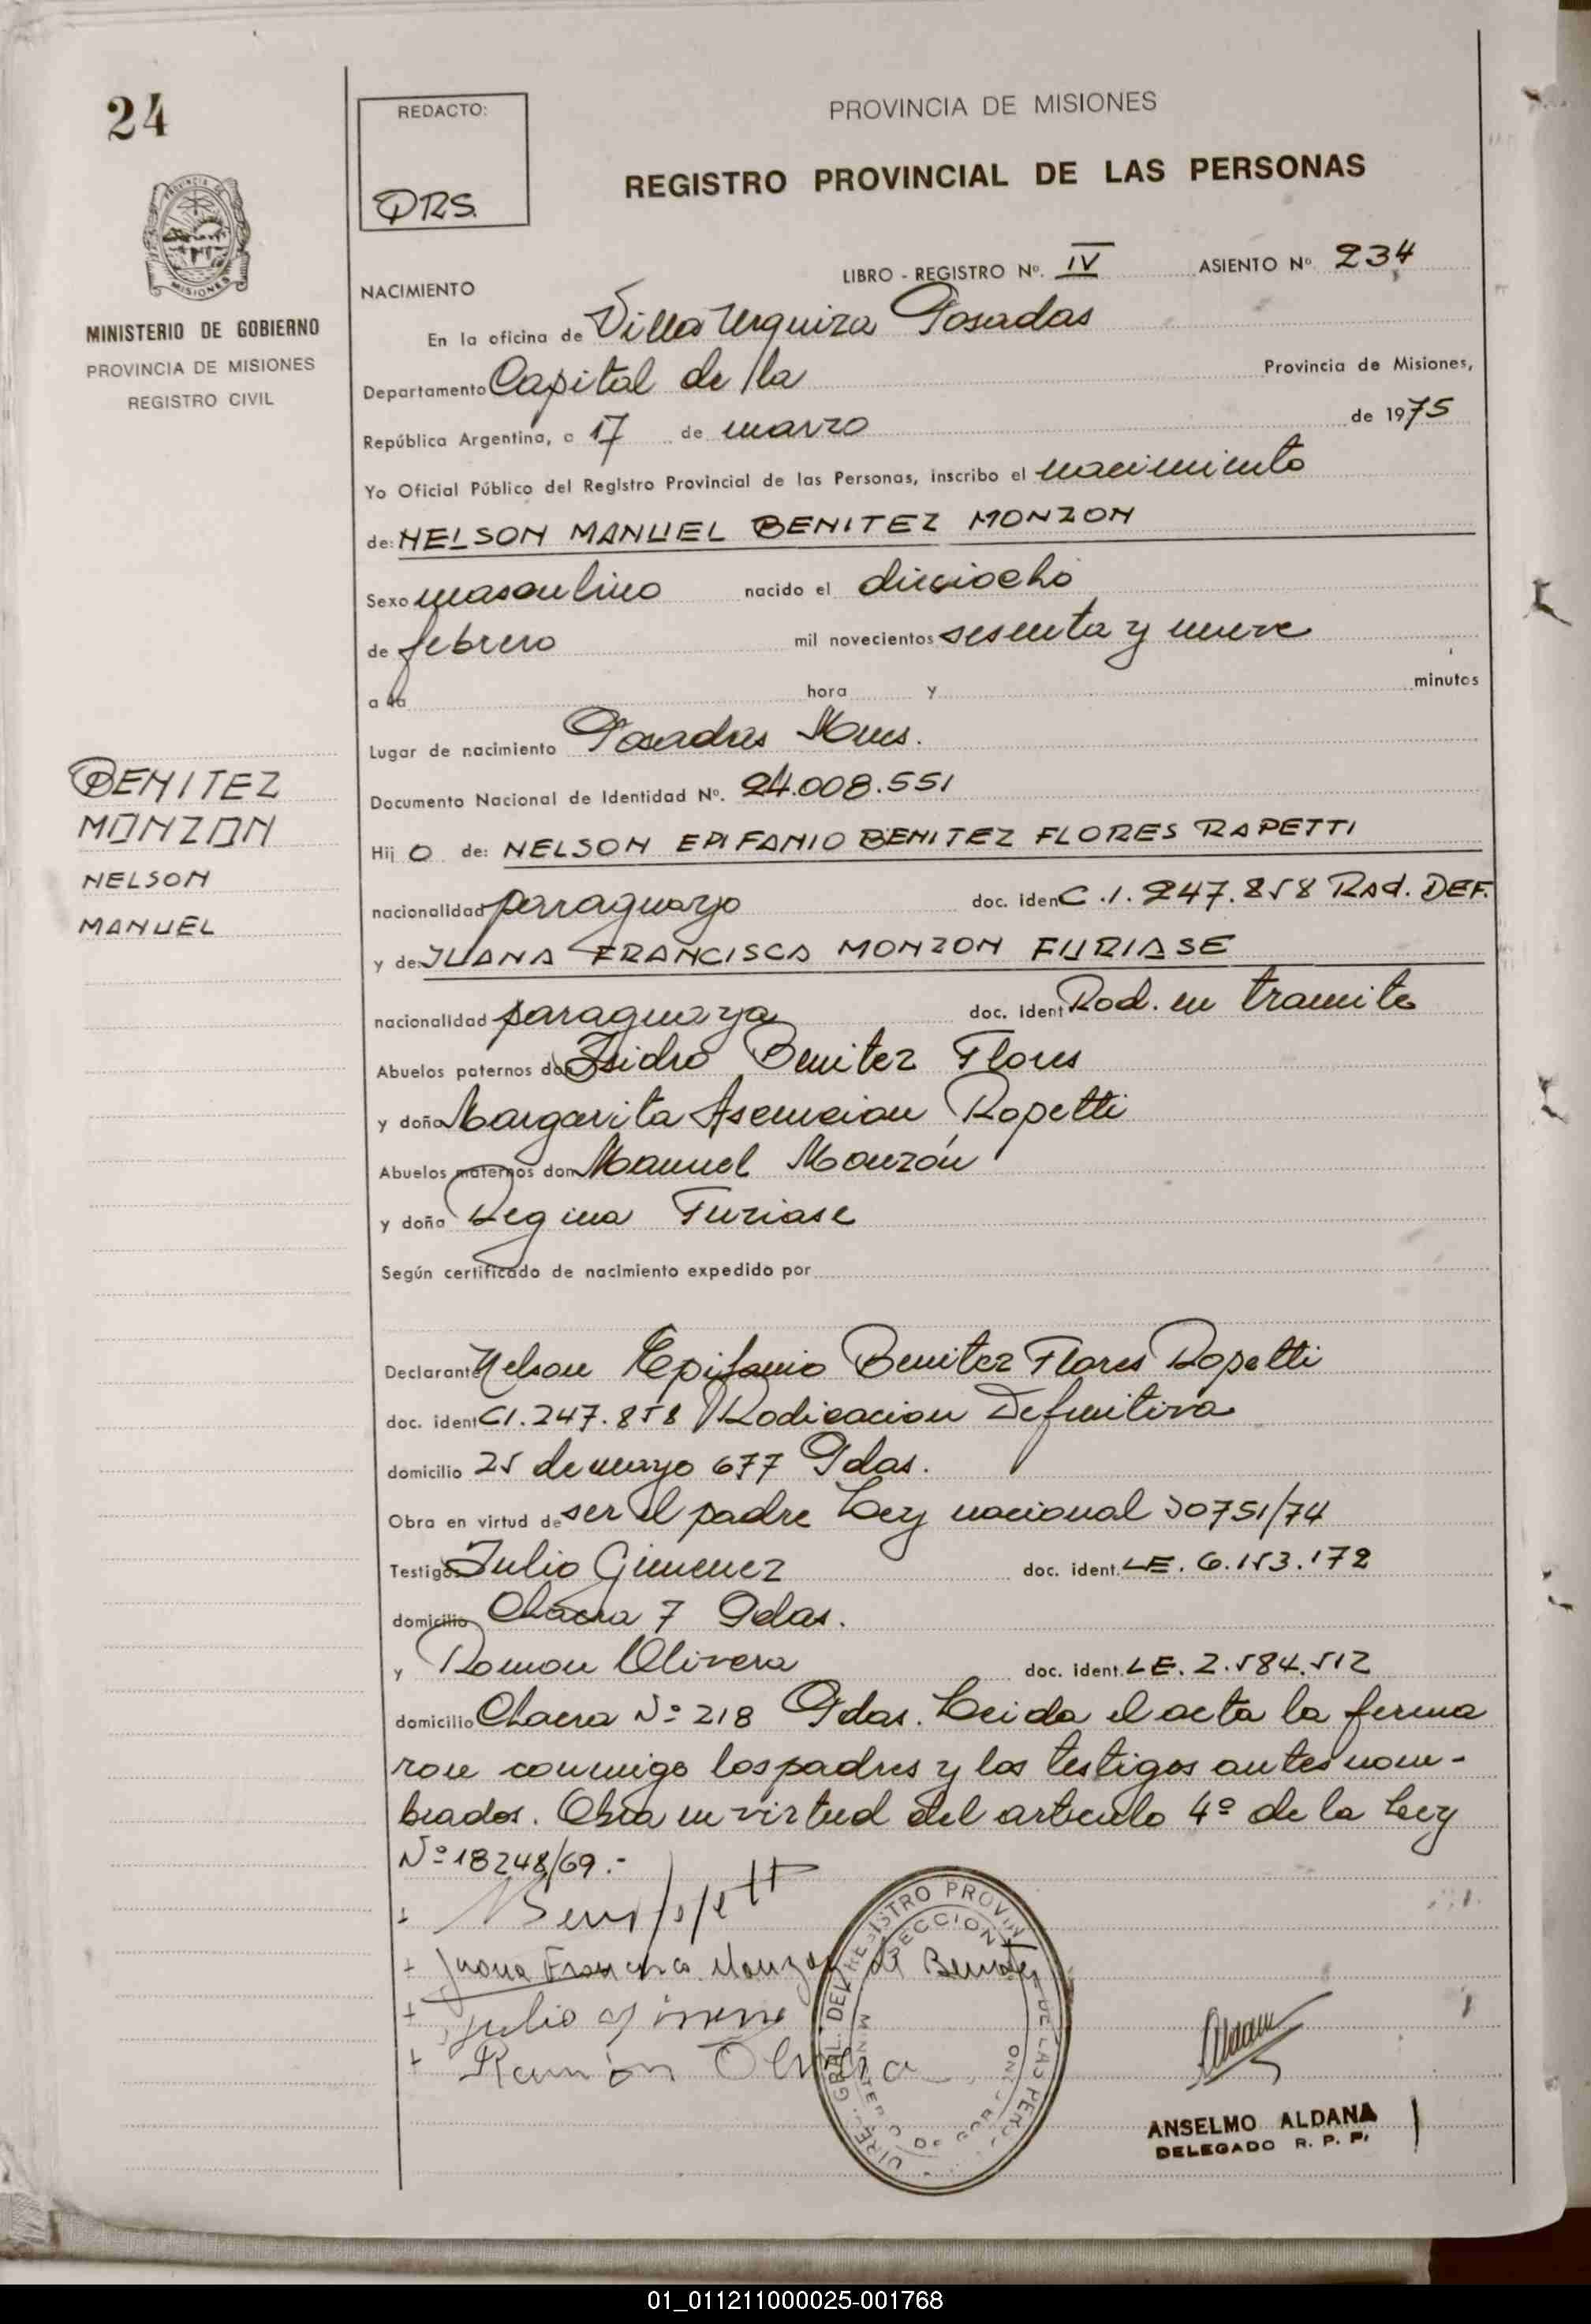 24
REDACTO:
PROVINCIA DE MISIONES
REGISTRO PROVINCIAL DE LAS PERSONAS
MISIONES
MINISTERIO DE GOBIERNO
PROVINCIA DE MISIONES
REGISTRO CIVIL
LIBRO - REGISTRO Nº. IV ASIENTO Nº 234
NACIMIENTO
En la oficina de Villa Urquiza Posadas
Departamento Capital de la Provincia de Misiones,
República Argentina, a 17 de marzo de 1975
Yo Oficial Público del Registro Provincial de las Personas, inscribo el nacimiento
de: NELSON MANUEL BENITEZ MONZON
Sexo masculino nacido el dieciocho
de febrero mil novecientos sesenta y nueve
a la hora y minutos
Lugar de nacimiento Posadas Mnes.
BENITEZ
MONZON
NELSON
MANUEL
Documento Nacional de Identidad Nº. 24.008.551
Hij O de: NELSON EPIFANIO BENITEZ FLORES RAPETTI
nacionalidad paraguayo doc. iden C.I. 247.858 RAd. DEF.
y de: JUANA FRANCISCA MONZON FURIASE
nacionalidad paraguaya doc. ident Rad. en tramite
Abuelos paternos don Isidro Benitez Flores
y doña Margarita Asencion Rapetti
Abuelos maternos don Manuel Monzón
y doña Regina Furiase
Según certificado de nacimiento expedido por
Declarante Nelson Epifanio Benitez Flores Rapetti
doc. ident CI. 247.858 Radicacion Definitiva
domicilio 25 de mayo 677 Pdas.
Obra en virtud de ser el padre Ley nacional 20751/74
Testigos Julio Gimenez doc. ident. LE. 6.153.172
domicilio Chacra 7 Pdas.
y Ramon Olivera doc. ident. LE. 2.584.512
domicilio Chacra Nº 218 Pdas. Leida el acta la firma
ron conmigo los padres y los testigos antes nom-
brados. Obra en virtud del articulo 4º de la Ley
Nº 18248/69.-
Juana Francisca Monzon de Benitez
Julio Gimenez
Ramón Olivera
REGISTRO PROVIN DE LAS PERS
SECCION
ANSELMO ALDANA
DELEGADO R. P. P.
01_011211000025-001768